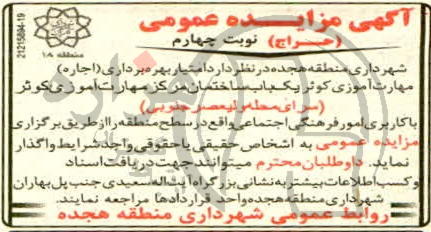 آگهی مزایده عمومی
(حراج) نوبت چهارم
منطقه ۱۸
21215894-19
شهرداری منطقه هجده در نظر دارد امتیاز بهره برداری (اجاره)
مهارت آموزی کوثر یک باب ساختمان مرکز مهارت آموزی کوثر
(سرای محله ولیعصر جنوبی)
با کاربری امور فرهنگی اجتماعی واقع در سطح منطقه را از طریق برگزاری
مزایده عمومی به اشخاص حقیقی یا حقوقی واجد شرایط واگذار
نماید. داوطلبان محترم میتوانند جهت دریافت اسناد
وکسب اطلاعات بیشتر به نشانی بزرگراه آیت اله سعیدی جنب پل بهاران
شهرداری منطقه هجده واحد قراردادها مراجعه نمایند.
روابط عمومی شهرداری منطقه هجده